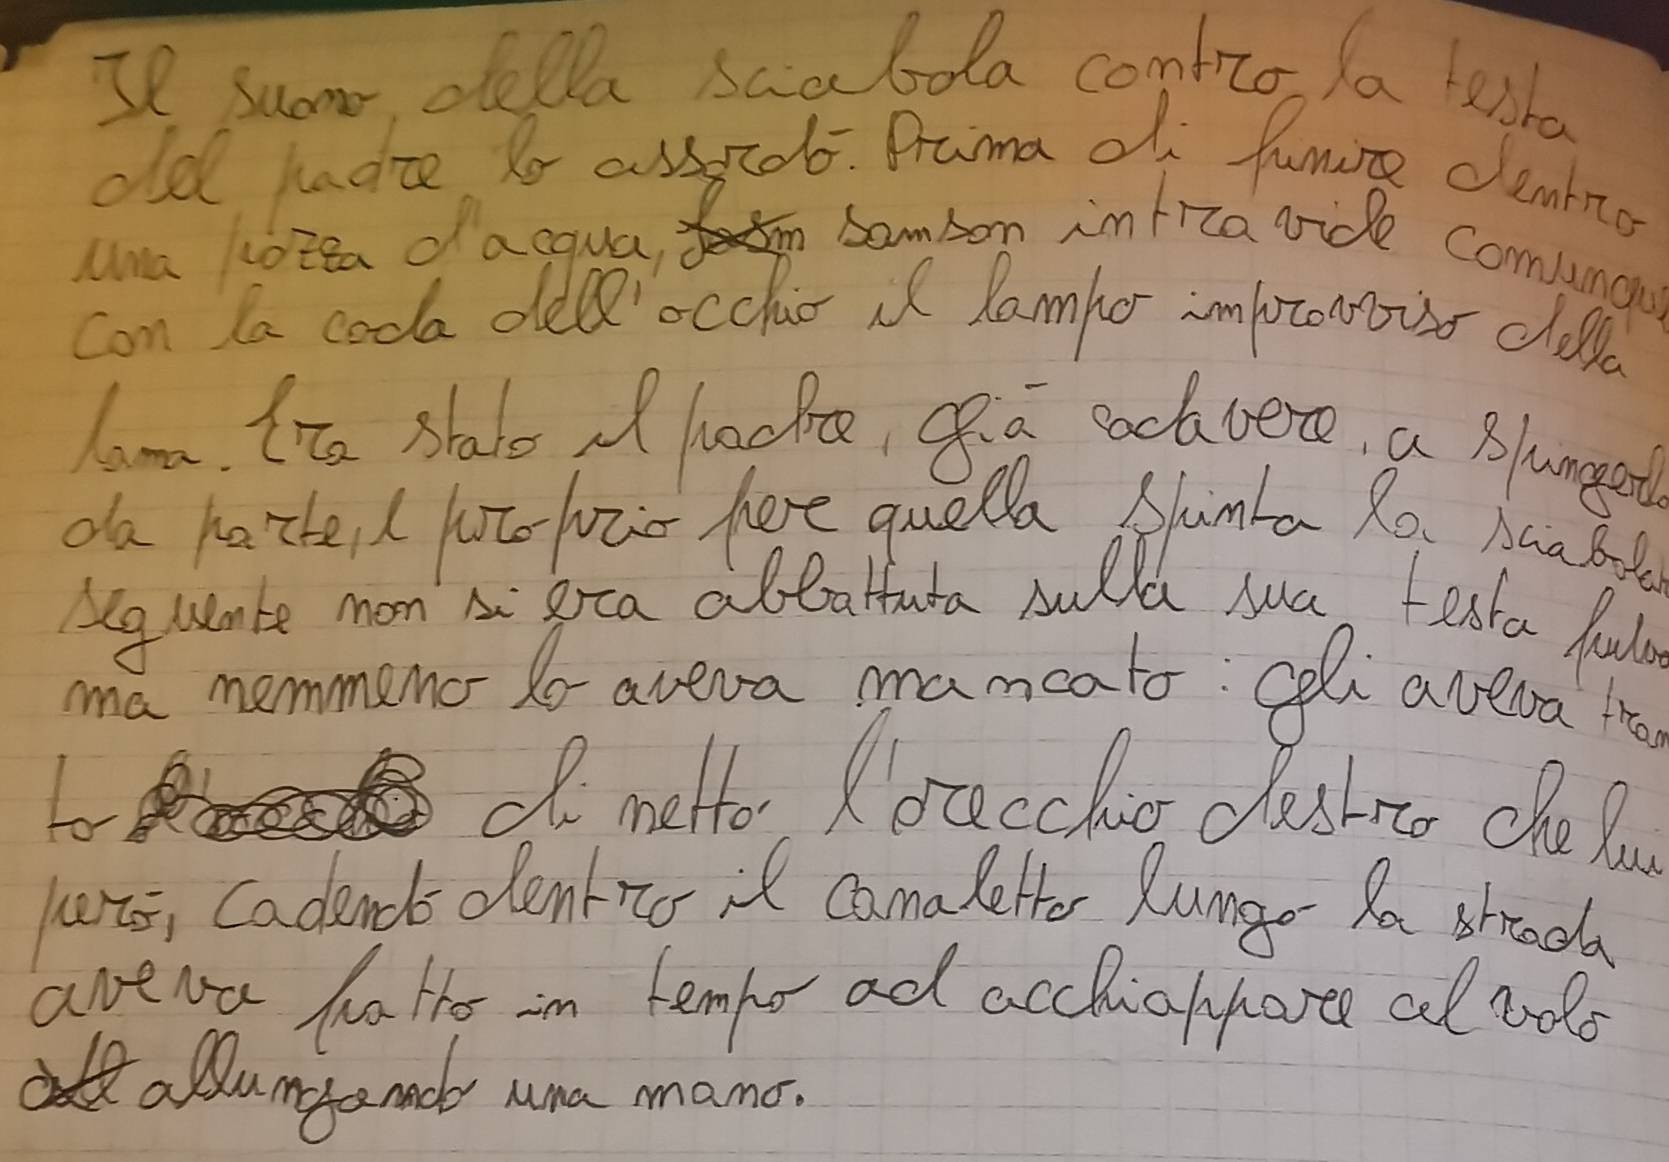 Il suono della sciabola contro la testa
del padre lo assordò. Prima di finire dentro
una pozza d'acqua, samson intravide comunque
con la coda dell'occhio il lampo improvviso della
lama. Era stato il padre, già cadavere, a spingerlo
da parte, e proprio per quella spinta la
seguente non si era abbattuta sulla sua testa
ma nemmeno lo aveva mancato: gli aveva
to di netto l'orecchio destro che lui
però, cadendo dentro il canaletto lungo la strada
aveva fatto in tempo ad acchiappare al volo
allungando una mano.